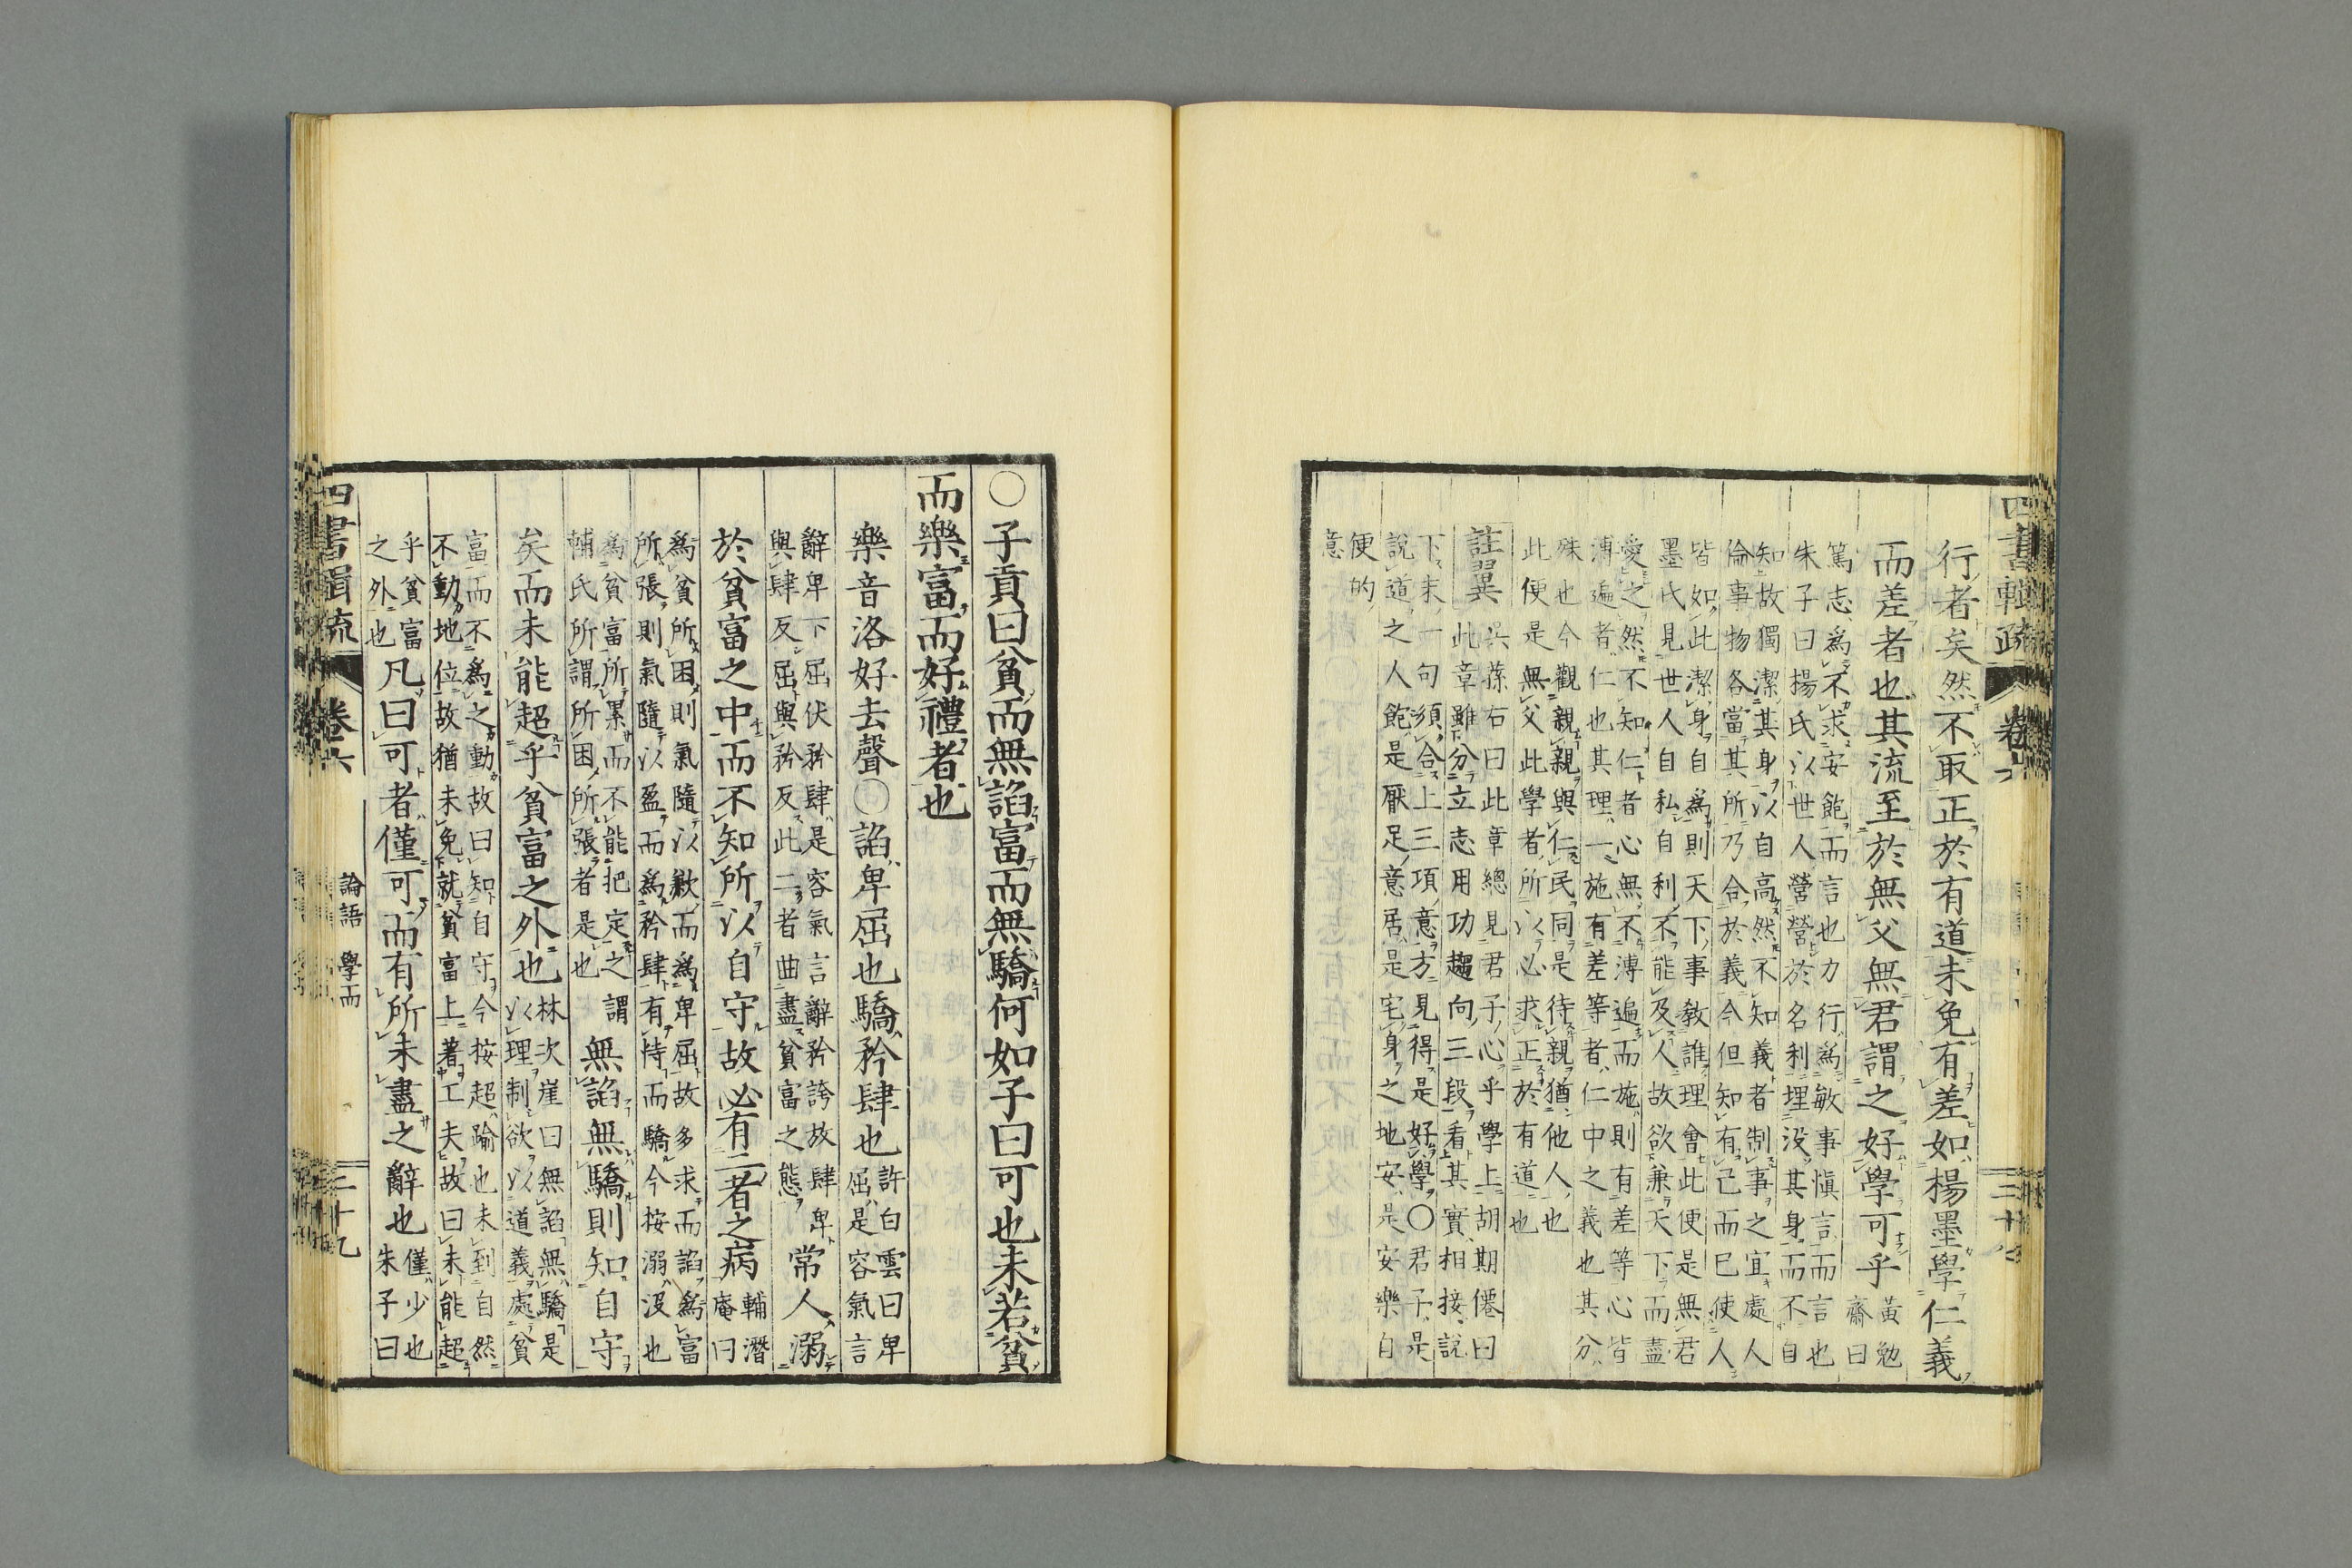 四書輯疏 卷六
行者矣然不取正於有道未免有差如楊墨學仁義
而差者也其流至於無父無君謂之好學可乎 黃勉
齋曰
篤志爲不求安飽而言也力行爲敏事愼言而言也
朱子曰揚氏以世人營營於名利埋没其身而不自
知故獨潔其身以自高然不知義者制事之宜處人
倫事物各當其所乃合於義今但知有己而已使人
皆如此潔身自爲則天下事敎誰理會此便是無君
墨氏見世人自私自利不能及人故欲兼天下而盡
愛之然不知仁者心無不溥遍而施則有差等心皆
溥遍者仁也其理一施有差等者仁中之義也其分
殊也今觀親親與仁民同是待親猶他人也
此便是無父此學者所以必求正於有道也
註翼 吳蓀右曰此章總見君子心乎學上胡期僊曰
此章雖分立志用功趨向三段看其實相接說
下末一句須合上三項意方見得是好學〇君子是
說道之人飽是厭足意居是宅身之地安是安樂自
便的
意
〇子貢曰貧而無諂富而無驕何如子曰可也未若貧
而樂富而好禮者也
樂音洛好去聲〇諂卑屈也驕矜肆也 許白雲曰卑
屈是容氣言
辭卑下屈伏矜肆是容氣言辭矜誇放肆卑
與肆反屈與矜反此二者曲盡貧富之態 常人溺
於貧富之中而不知所以自守故必有二者之病 輔潛
庵曰
爲貧所困則氣隨以歉而爲卑屈故多求而諂爲富
所張則氣隨以盈而爲矜肆有恃而驕今按溺没也
爲貧富所累而不能把定之謂
輔氏所謂所困所張者是也 無諂無驕則知自守
矣而未能超乎貧富之外也 林次崖曰無諂無驕是
以理制欲以道義處貧
富而不爲之動故曰知自守今按超踰也未到自然
不動地位故猶未免就貧富上著工夫故曰未能超
乎貧富
之外也 凡曰可者僅可而有所未盡之辭也 僅少也
朱子曰
四書輯疏 卷六 論語 學而 二十九